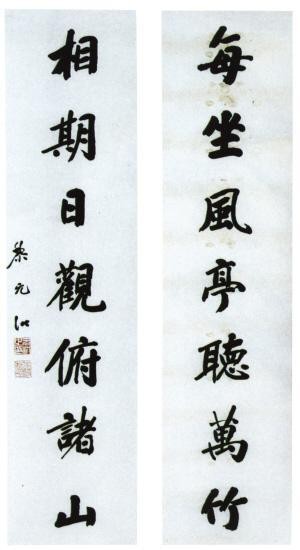 每坐風亭聽萬竹
相期日觀俯諸山
黎元洪